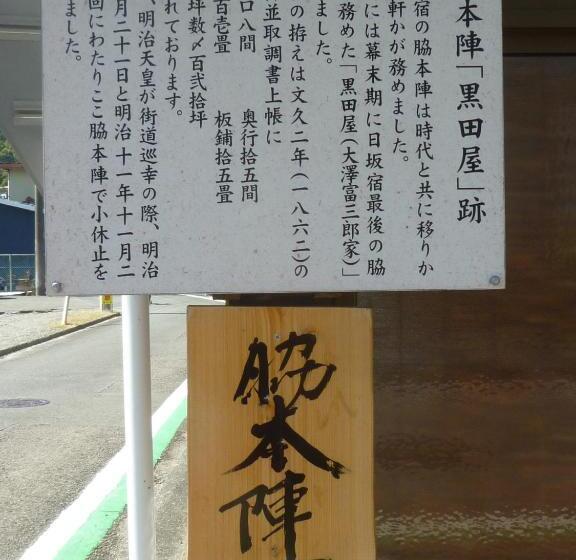 本陣「黒田屋」跡
宿の脇本陣は時代と共に移りか
軒かが務めました。
には幕末期に日坂宿最後の脇
務めた「黒田屋(大澤富三郎家)」
ました。
の拵えは文久二年(一八六二)の
並取調書上帳に
口八間 奥行拾五間
百壱畳 板鋪拾五畳
坪数〆百弐拾坪
れております。
、明治天皇が街道巡幸の際、明治
月二十一日と明治十一年十一月二
回にわたりここ脇本陣で小休止を
ました。
脇本陣